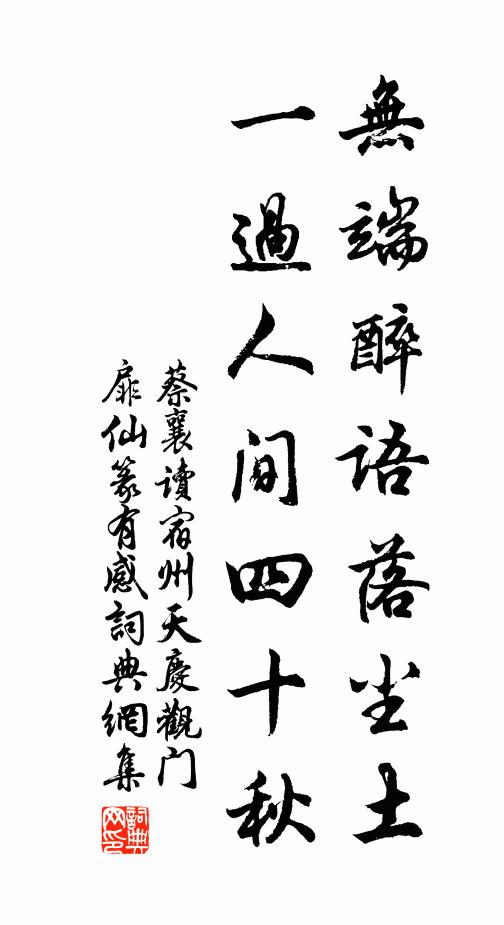 無端醉語落尘土
一過人间四十秋
蔡襄讀宿州天慶觀门
扉仙篆有感詞典網集
詞典
网印